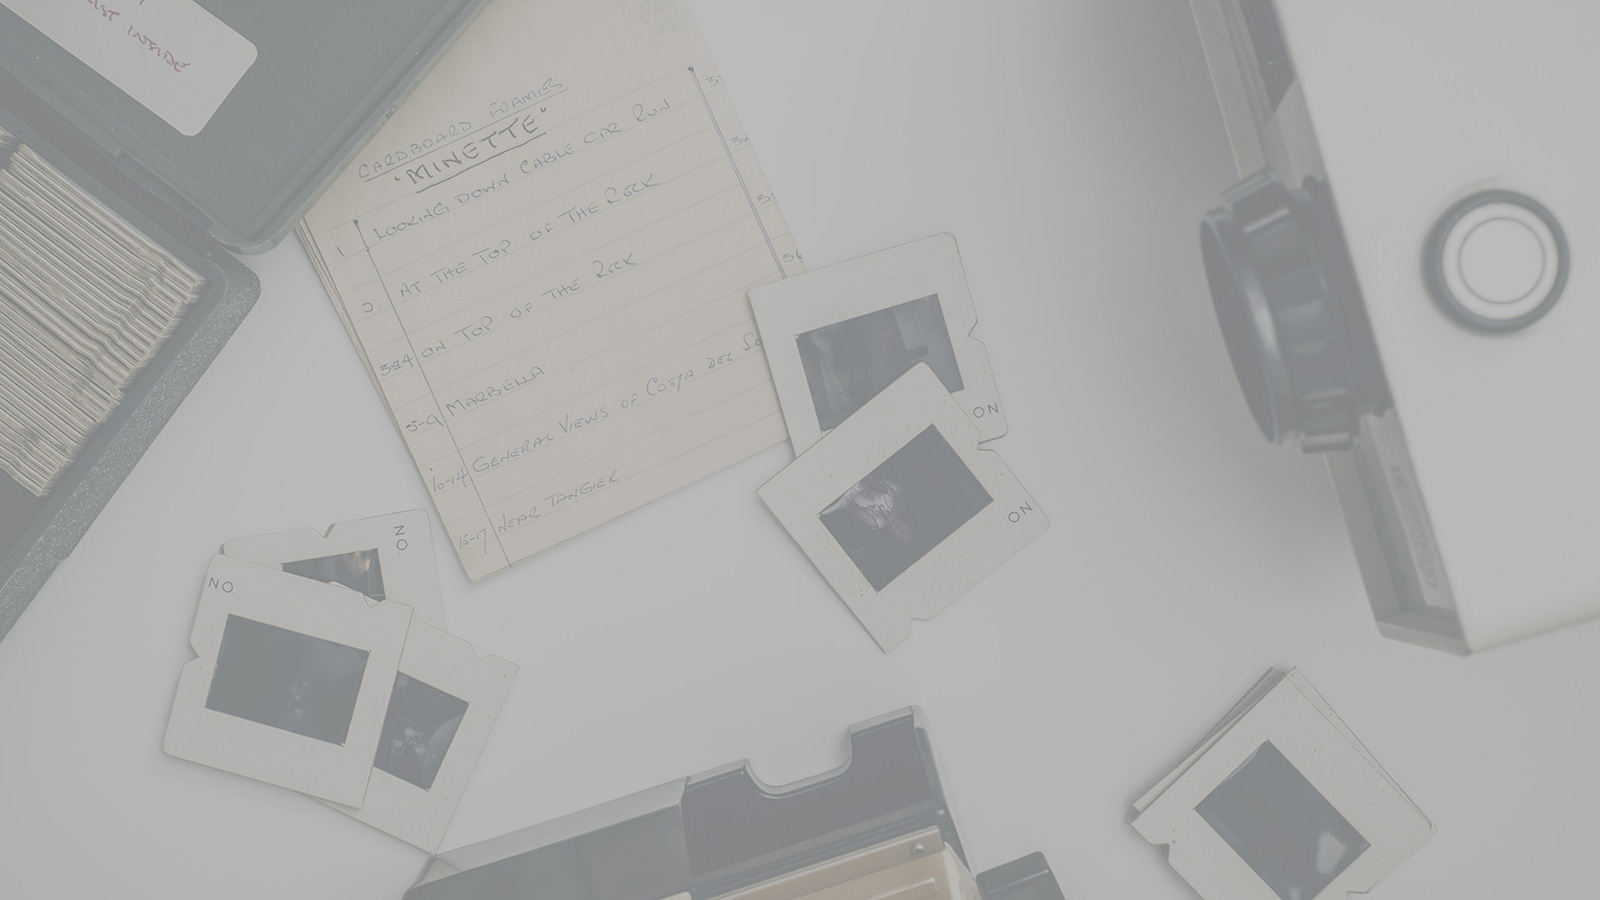 INSIDE
CARDBOARD FRAMES
"MINETTE"
1 LOOKING DOWN CABLE CAR RUN
2. AT THE TOP OF THE ROCK
3&4 ON TOP OF THE ROCK
5-9 MARBELLA
10-14 GENERAL VIEWS OF COSTA DEL
15-17 NEAR TANGIER
NO
NO.
NO.
NO.